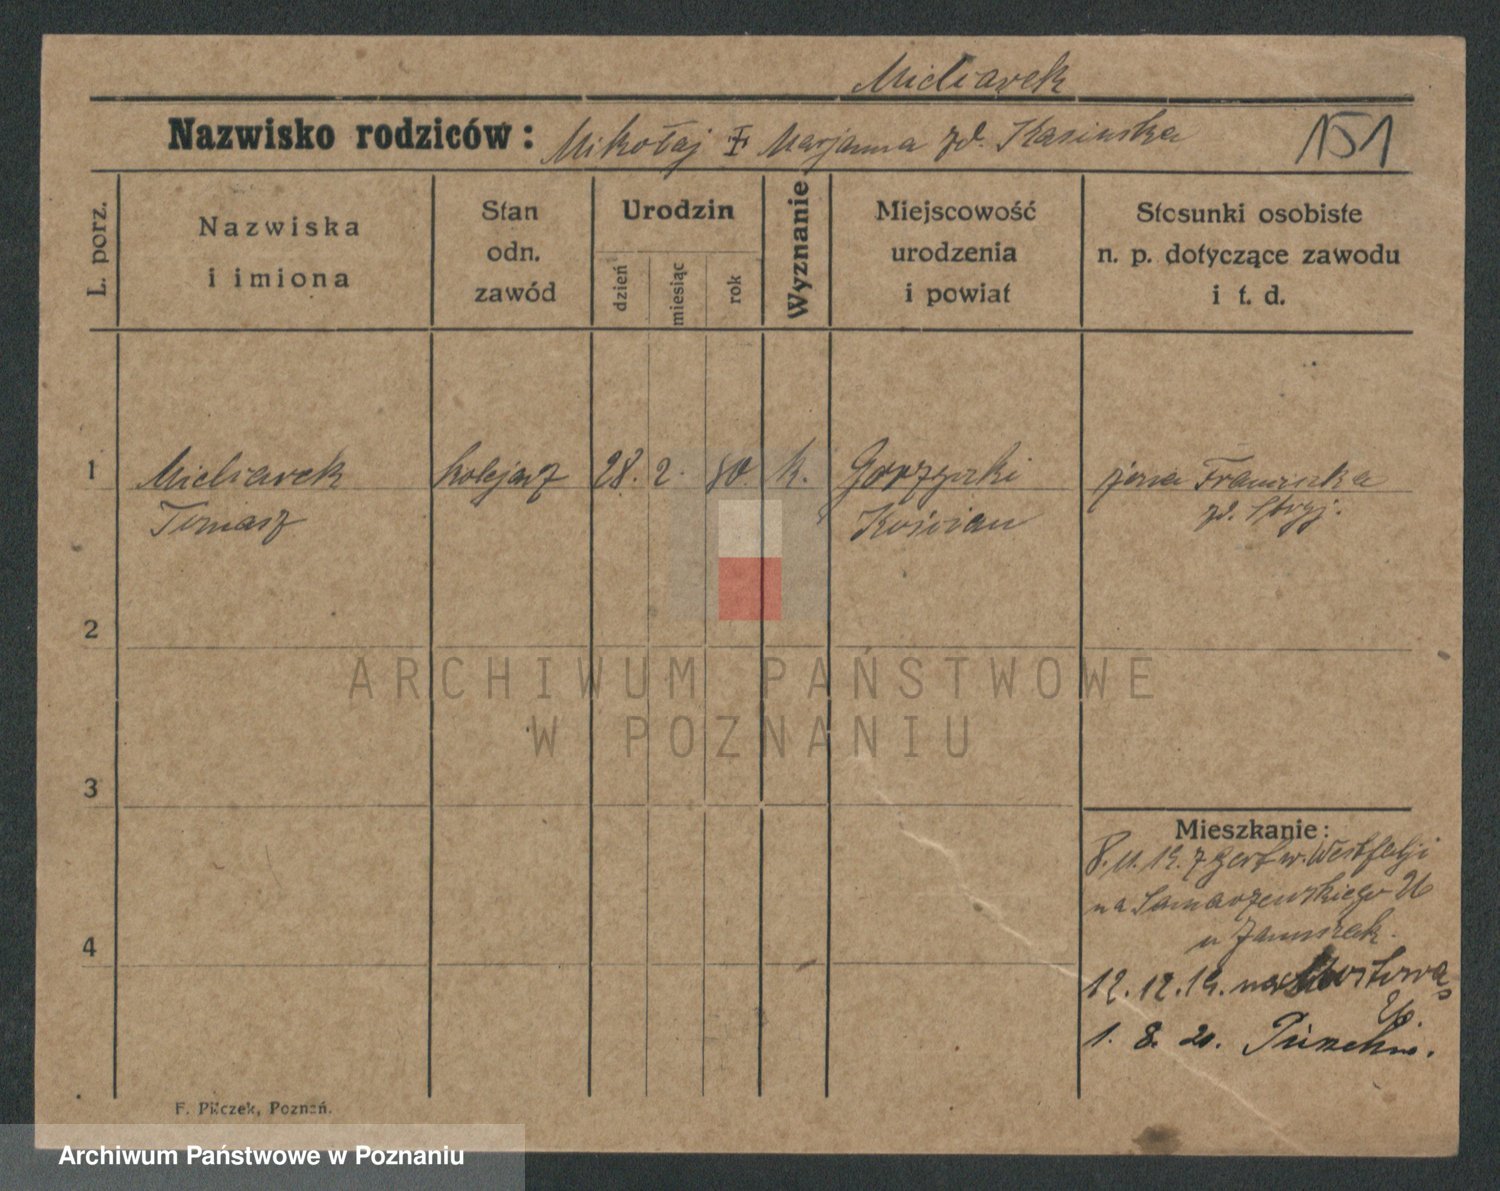 Mielcarek
Nazwisko rodziców: Mikołaj I Marjanna zd.
151
L. porz.
Nazwiska
i imiona
Stan
odn.
zawód
Urodzin
dzień
miesiąc
rok
Wyznanie
Miejscowość
urodzenia
i powiat
Stosunki osobiste
n. p. dotyczące zawodu
i t. d.
1
Mielcarek
Tomasz
kolejarz
28. 2. 80. k.
Gorzyczki
Kościan
żona Franciszka
zd. Stryj.
2
ARCHIWUM PAŃSTWOWE
W POZNANIU
3
Mieszkanie:
8.11.19. z w. Westfalji
na Samarzewskiego 26
u
4
12.12.19. na
1. 8. 20.
F. Pilczek, Poznań.
Archiwum Państwowe w Poznaniu